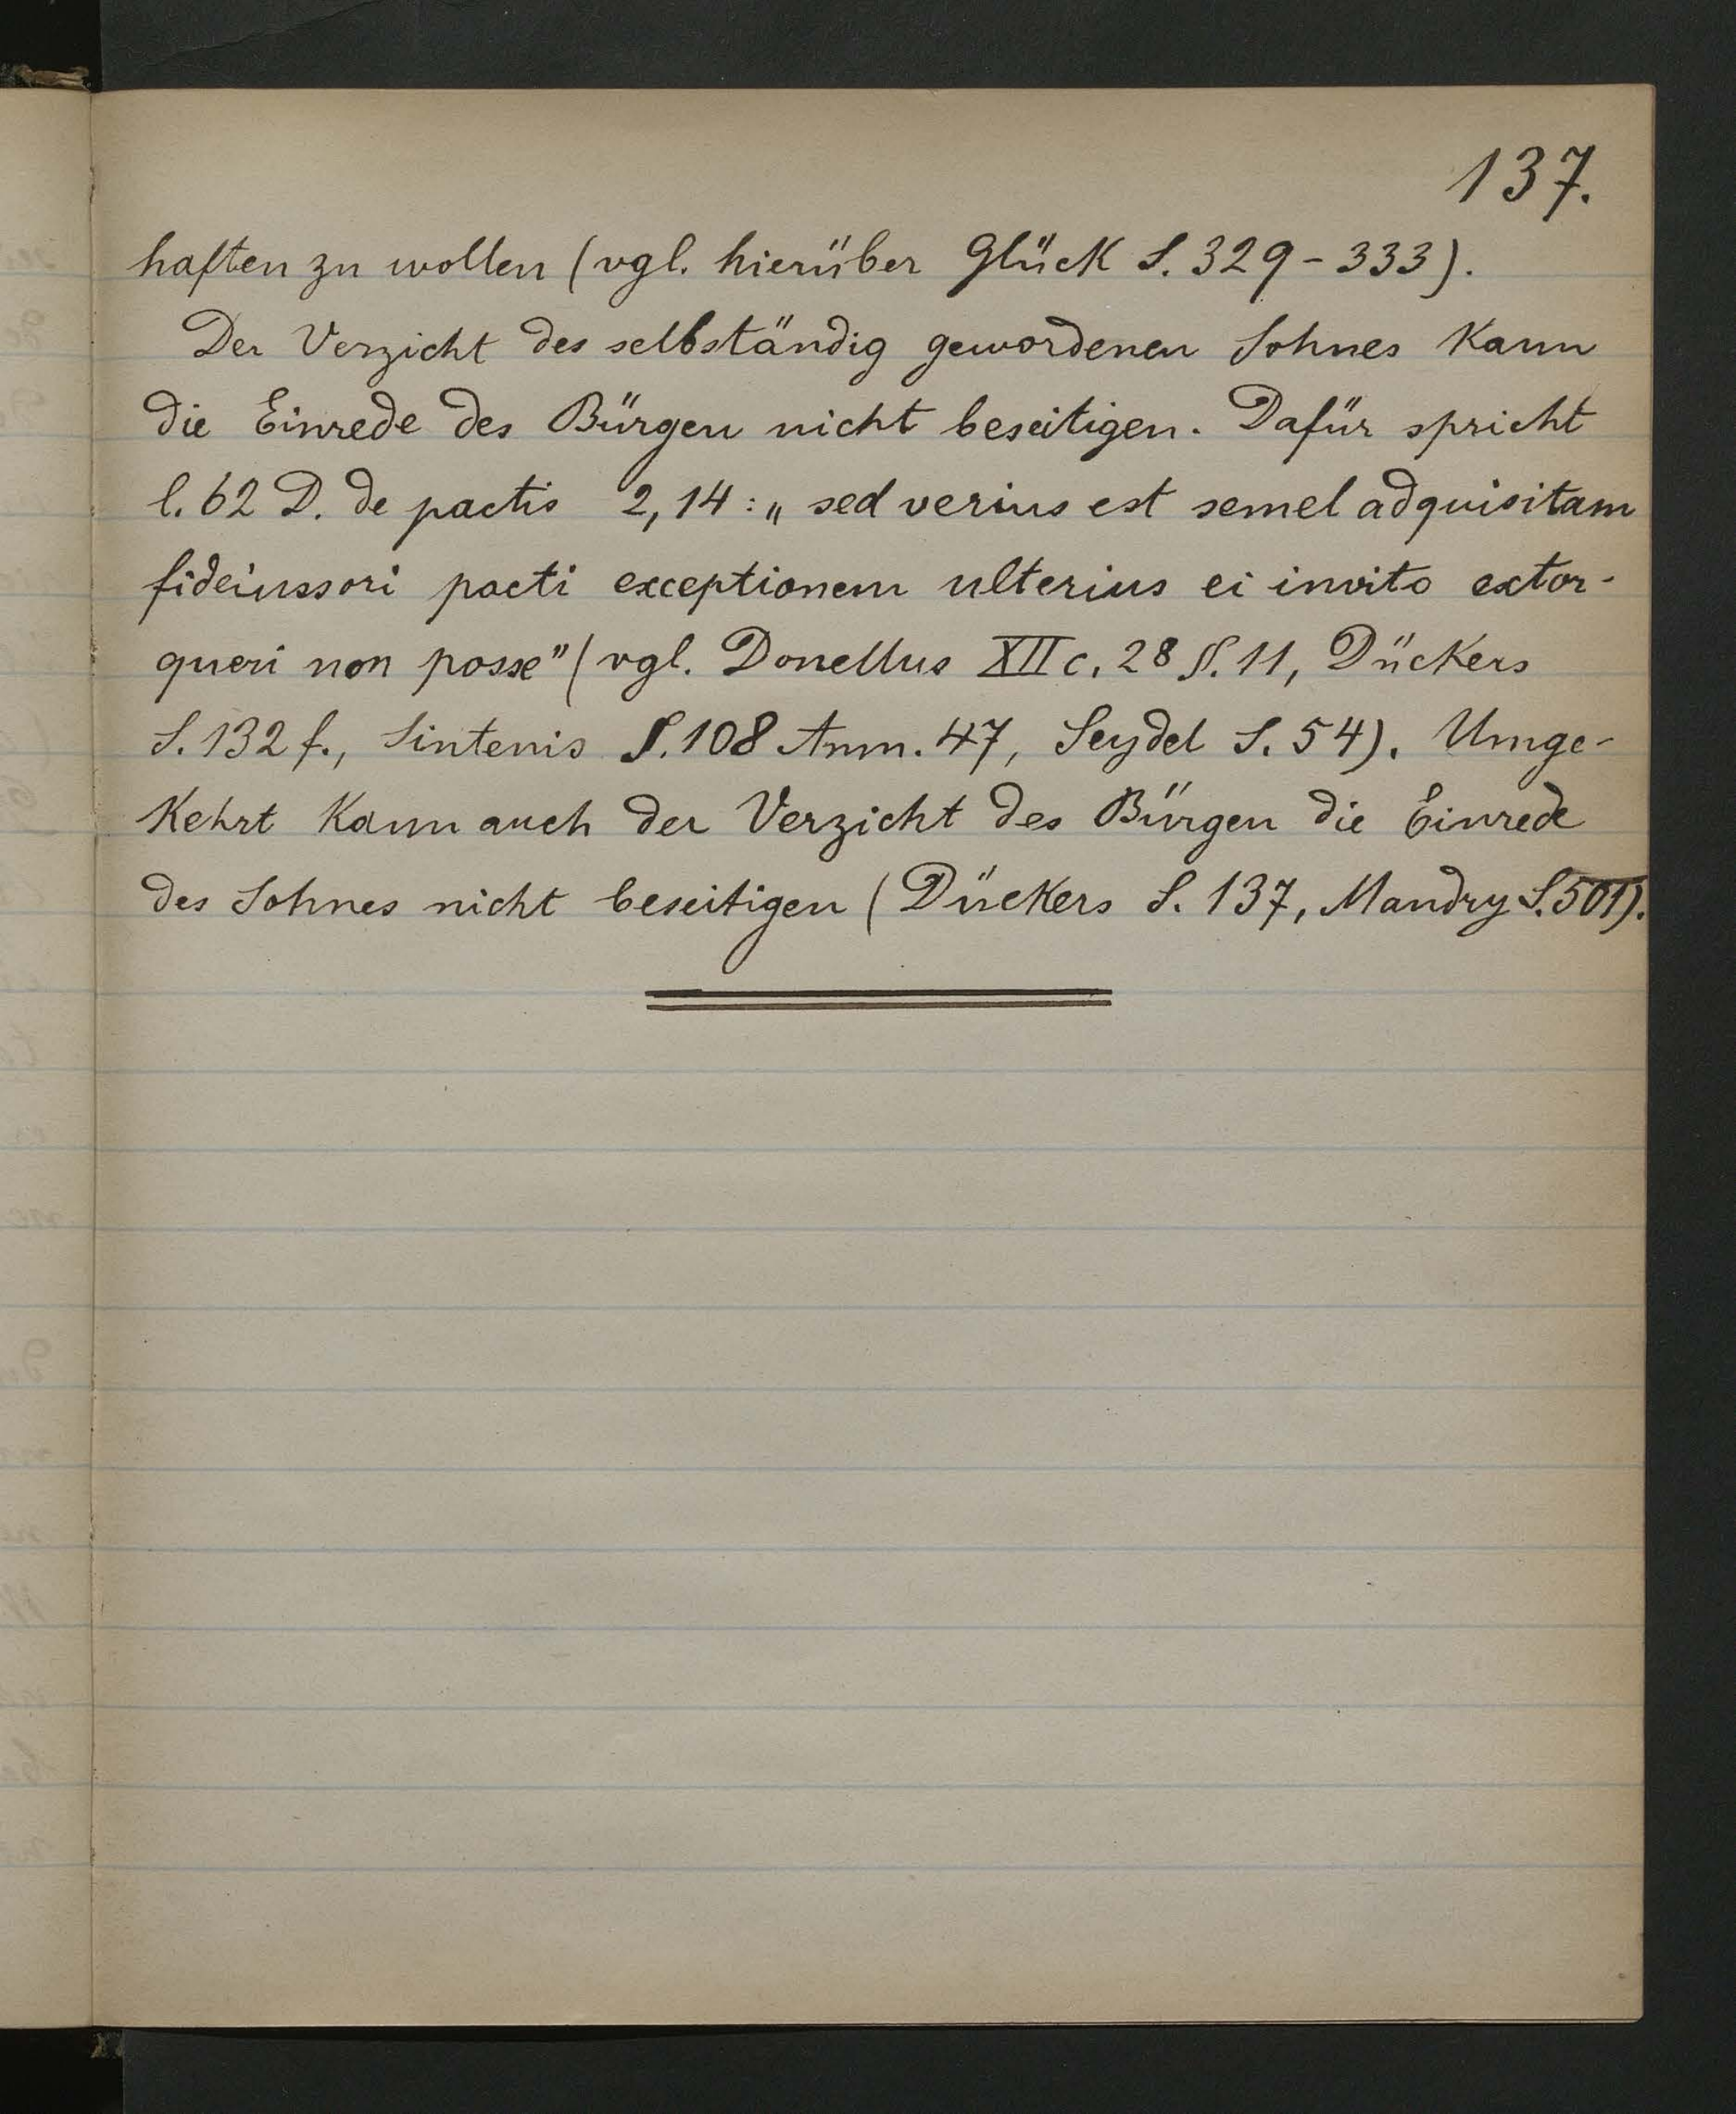 137.
haften zu wollen (vgl. hierüber Glück S. 329-333).
Der Verzicht des selbständig gewordenen Sohnes kann
die Einrede des Bürgen nicht beseitigen. Dafür spricht
l. 62 D. de pactis 2,14: „sed verius est semel adquisitam
fideiussori pacti exceptionem ulterius ei invito extor-
queri non posse" (vgl. Donellus XII c. 28 §. 11, Dückers
S. 132 f., Sintenis §. 108 Anm. 47, Seydel S. 54). Umge-
kehrt kann auch der Verzicht des Bürgen die Einrede
des Sohnes nicht beseitigen (Dückers S. 137, Mandry S. 501).